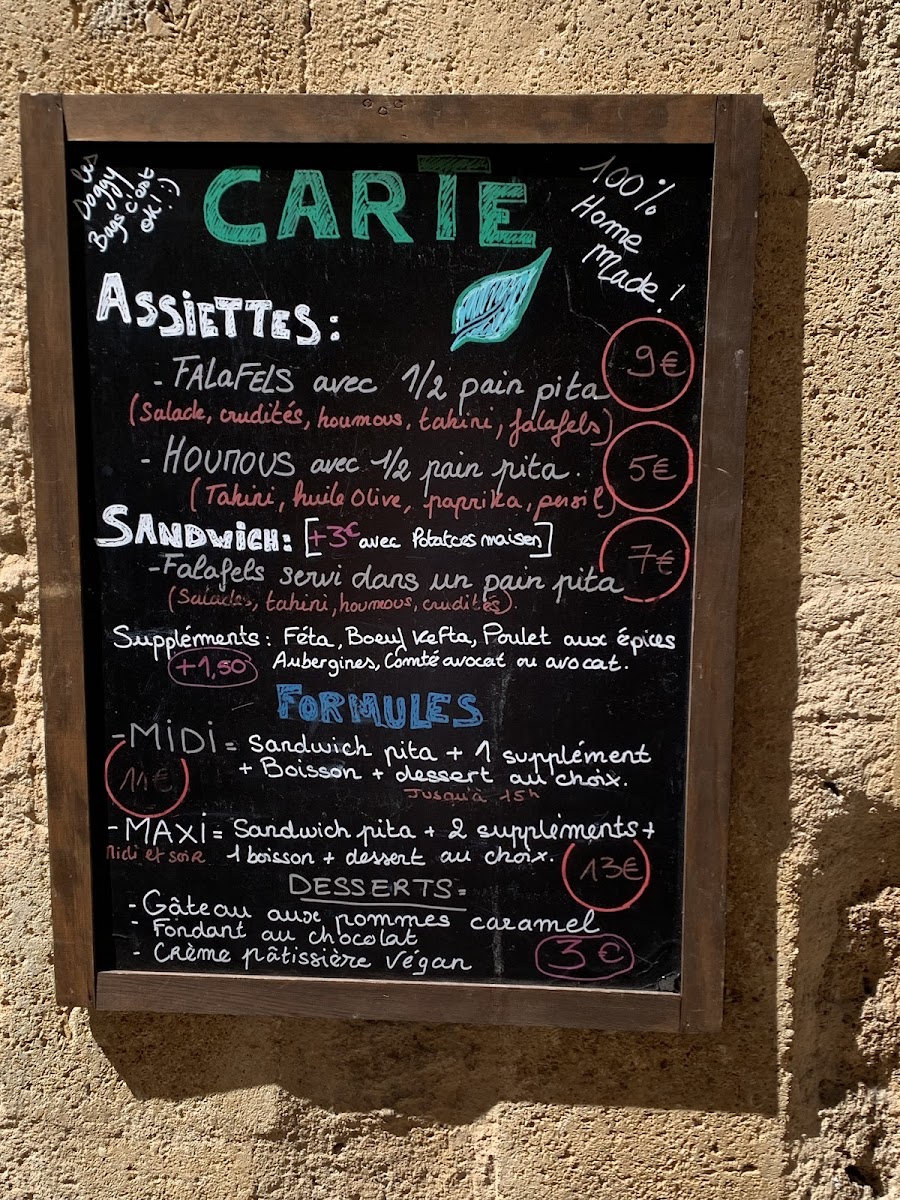 Les
Doggy
Bags c'est
ok! :)
CARTE
100%
Home
Made!
ASSIETTES:
- FALAFELS avec 1/2 pain pita
9€
(Salade, crudités, houmous, tahini, falafels)
- HOUMOUS avec 1/2 pain pita.
5€
(Tahini, huile olive, paprika, persil)
SANDWICH: [+3€ avec Potatoes maison]
7€
-Falafels servi dans un pain pita
(Salades, tahini, houmous, crudités).
Suppléments: Féta, Boeuf Kefta, Poulet aux épices
+1,50 Aubergines, Comté avocat ou avocat.
FORMULES
-MIDI = Sandwich pita + 1 supplément
11€ + Boisson + dessert au choix.
Jusqu'à 15h
-MAXI = Sandwich pita + 2 suppléments +
Midi et soir 1 boisson + dessert au choix.
13€
DESSERTS =
- Gâteau aux pommes caramel
- Fondant au chocolat
- Crème pâtissière végan
3€